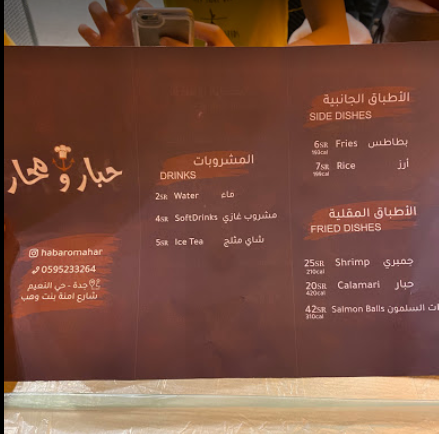 حبار و محار
habaromahar
0595233264
جدة - حي النعيم
شارع امنة بنت وهب
المشروبات
DRINKS
2SR Water ماء
4SR SoftDrinks مشروب غازي
5SR Ice Tea شاي مثلج
الأطباق الجانبية
SIDE DISHES
6SR Fries بطاطس
7SR Rice أرز
الأطباق المقلية
FRIED DISHES
25SR Shrimp جمبري
210cal
20SR Calamari حبار
420cal
42SR Salmon Balls ات السلمون
310cal